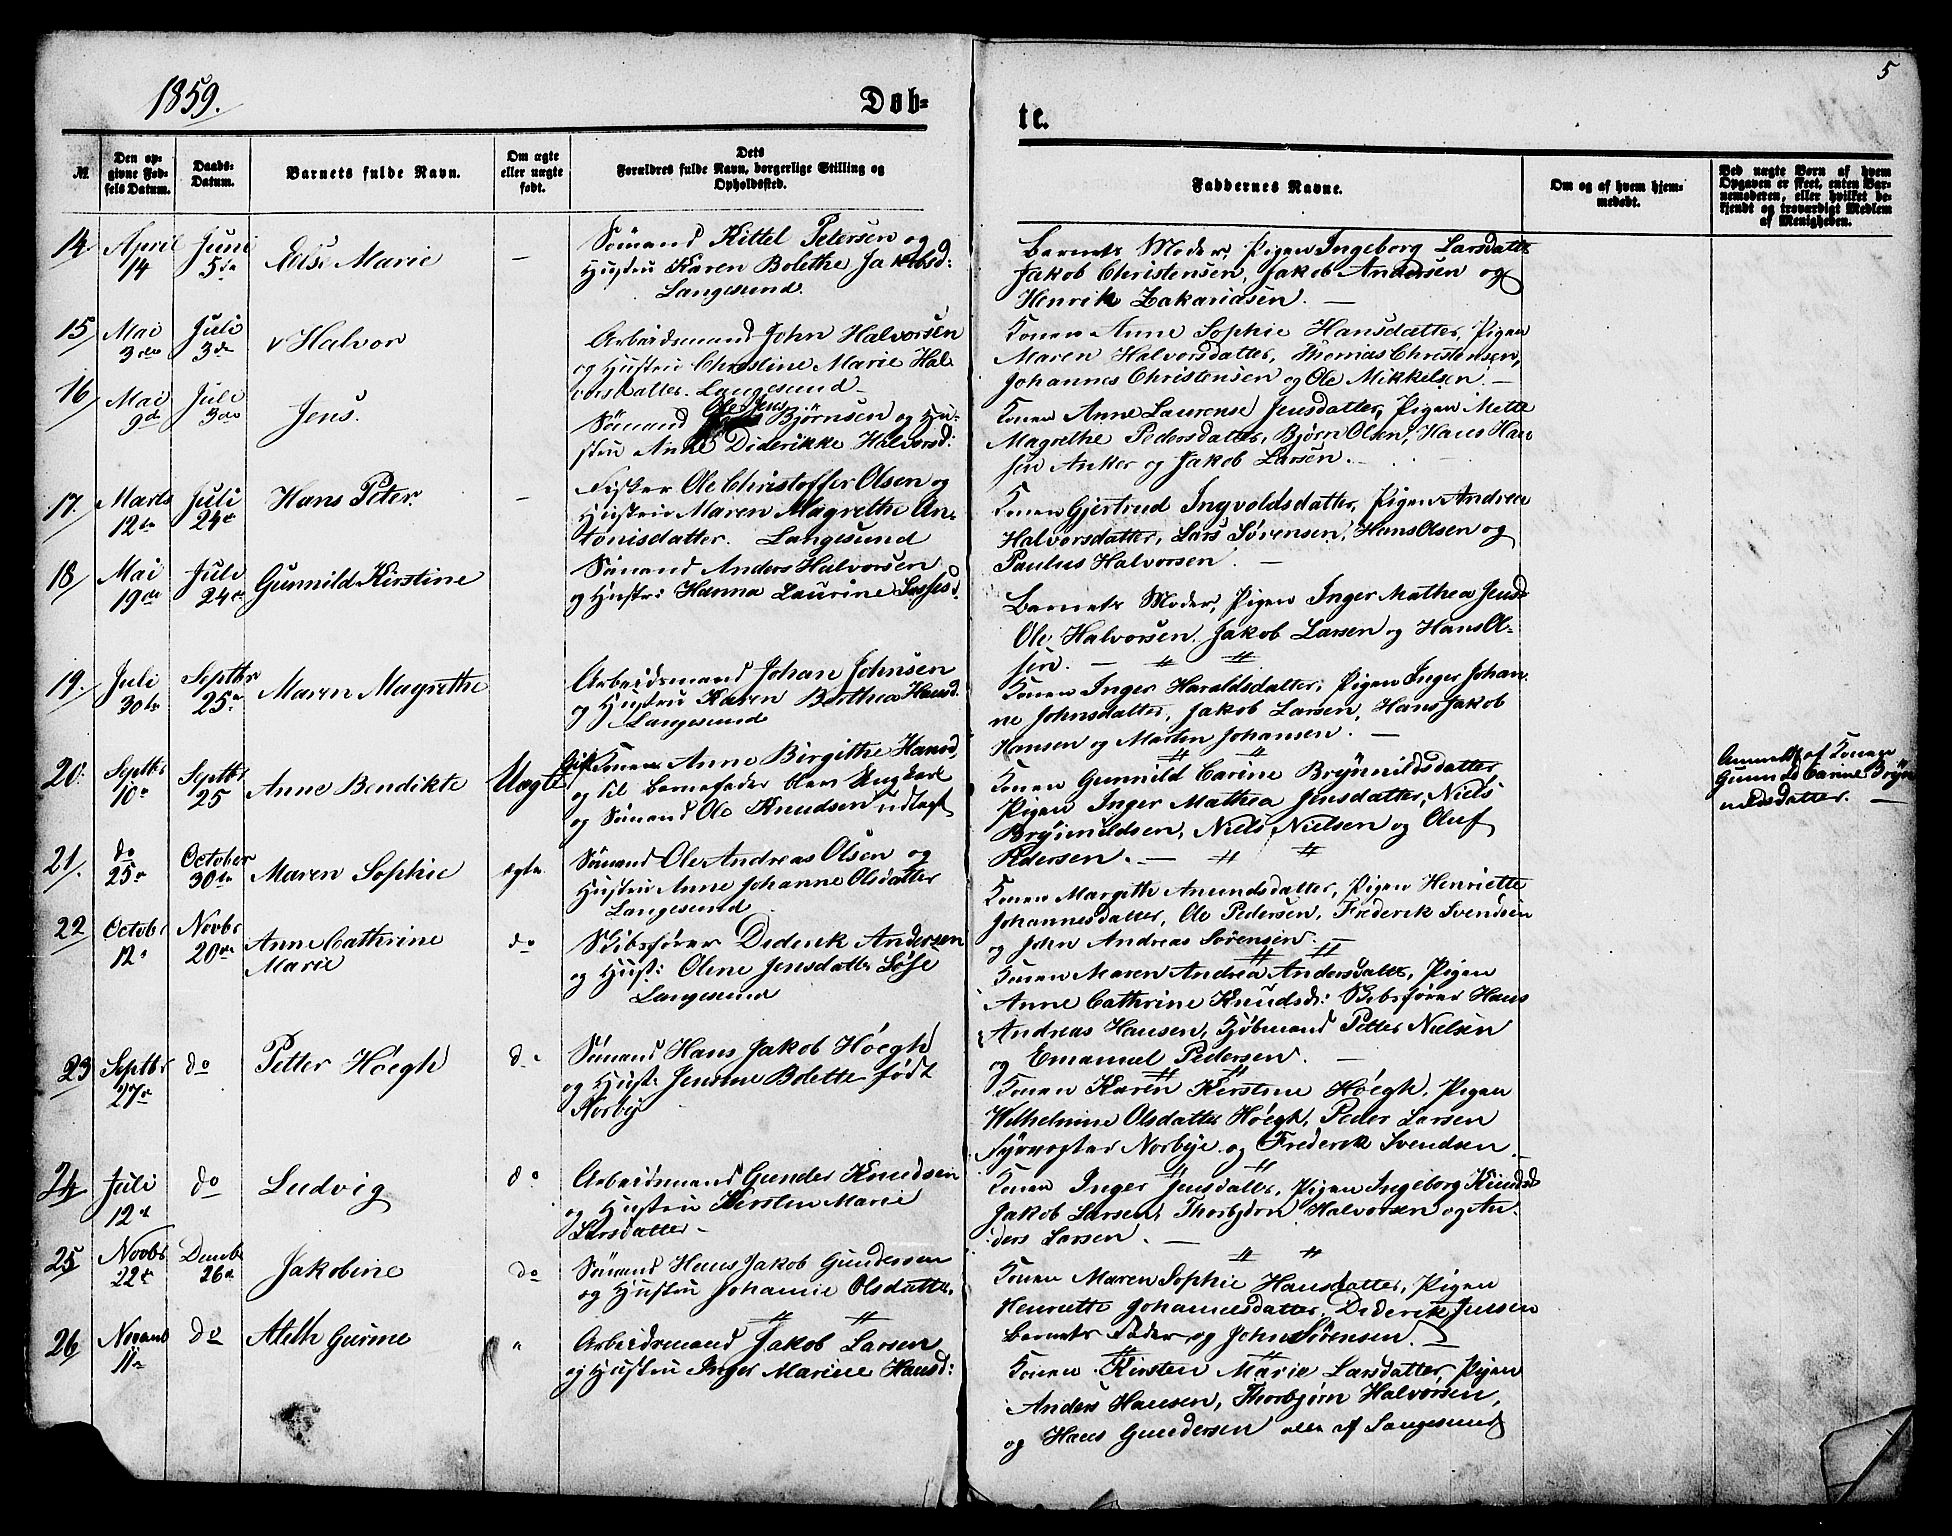 5
1859.
Døb=
te.
№
Den op=
givne Fød=
sels Datum.
Daabs=
Datum.
Barnets fulde Navn.
Om ægte
eller uægte
født.
Dets
Forældres fulde Navn, borgerlige Stilling og
Opholdssted.
Faddernes Navne.
Om og af hvem hjem=
medøbt.
Ved uægte Børn af hvem
Opgaven er skeet, enten Bar=
nemoderen, eller hvilket be=
kjendt og troværdigt Medlem
af Menigheden.
14 April 14 Juni 5te Else Marie —
Sömand Kittel Petersen og
Hustru Karen Bolethe Jakobsd:
Langesund.
Barnets Moder, Pigen Ingeborg Larsdatter
Jakob Christensen, Jakob Andersen og
Henrik Zakariasen. —
15 Mai 3die Juli 3die Halvor
Arbeidsmand John Halvorsen
og Hustru Christine Marie Hal
vorsdatter. Langesund
Konen Anne Sophie Hansdatter, Pigen
Maren Halvorsdatter, Thomas Christensen,
Johannes Christensen og Ole Mikkelsen. —
16 Mai 9de Juli 3die Jens.
Ole Jens
Sömand Bjørnsen og Hu-
stru Anne Diderikke Halvorsd:
Konen Anne Laurense Jensdatter, Pigen Mette
Magrethe Pedersdatter, Bjørn Olsen, Hans Han
sen Anker og Jakob Larsen.
17. Marts 12te Juli 24de Hans Peter. —
Fisker Ole Christoffer Olsen og
Hustru Maren Magrethe An-
tonisdatter. Langesund
Konen Gjertrud Ingvoldsdatter, Pigen Andrea
Halvorsdatter, Lars Sørensen, Hans Olsen og
Paulus Halvorsen. —
18 Mai 19de Juli 24de Gunnild Kirstine
Sömand Anders Halvorsen
og Hustr: Hanna Laurine
Barnets Moder, Pigen Inger Mathea Jensd
Ole Halvorsen, Jakob Larsen og Hans Ol-
sen. —
19. Juli 30te Septbr 25de Maren Magrethe
Arbeidsmand Johan Johnsen
og Hustru Karen Berthea Hansd.
Langesund
Konen Inger Haraldsdatter, Pigen Inger Johan
ne Johnsdatter, Jakob Larsen, Hans Jakob
Hansen og Morten Johansen. —
20. Septbr 10de Septbr 25 Anne Bendikte Uægte
Gift Konen Anne Birgithe Hansd.
og til Barnefader blev Ungkarl
og Sömand Ole Knudsen udlagt
Konen Gunnild Carine Brynnildsdatter
Pigen Inger Mathea Jensdatter, Niels
Brynnildsen, Niels Nielsen og Oluf
Pedersen. —
Anmeldt af Konen
Gunnild Carine Bryn
nildsdatter. —
21. do 25de October 30te Maren Sophie ægte
Sömand Ole Andreas Olsen og
Hustru Anne Johanne Olsdatter
Langesund
Konen Margith Amundsdatter, Pigen Henriette
Johannesdatter, Ole Pedersen, Frederik Svendsen
og John Andreas Sørensen. —
22 Octobr 12te Novbr 20de Anne Cathrine
Marie do
Skibsfører Diderik Andersen
og Hust: Olene Jensdatter
Langesund
Konen Maren Andrea Andersdatter, Pigen
Anne Cathrine Knudsd: Skibsfører Hans
Andreas Hansen, Kjöbmand Petter Nielsen
og Emanuel Pedersen. —
23 Septbr 27de do Petter Höegh do
Sömand Hans Jakob Höegh
og Hust: Jensine Bolette født
Norbÿe
Konen Karen Kerstine Höegh, Pigen
Wilhelmine Olsdatter Höegh, Peder Larsen
Norbÿe og Frederik Svendsen —
24 Juli 12te do Ludvig do
Arbeidsmand Gunder Knudsen
og Hustru Kersten Marie
Larsdatter —
Konen Inger Jensdatter, Pigen Ingeborg Knudsd
Jakob Larsen, Thorbjörn Halvorsen og An-
ders Larsen. —
25 Novbr 22de Decmbr 26de Jakobine do
Sömand Hans Jakob Gundersen
og Hustru Johanne Olsdatter.
Konen Maren Sophie Hansdatter, Pigen
Henriette Johannesdatter, Diderik Jensen
Barnets Fader og John Sørensen.
26 Novemb 11te do Aleth Gurine "
Arbeidsmand Jakob Larsen
og Hustru Inger Marine Hansd:
Konen Kirsten Marie Larsdatter, Pigen
Anders Hansen, Thorbjørn Halvorsen,
og Hans Gundersen alle af Langesund